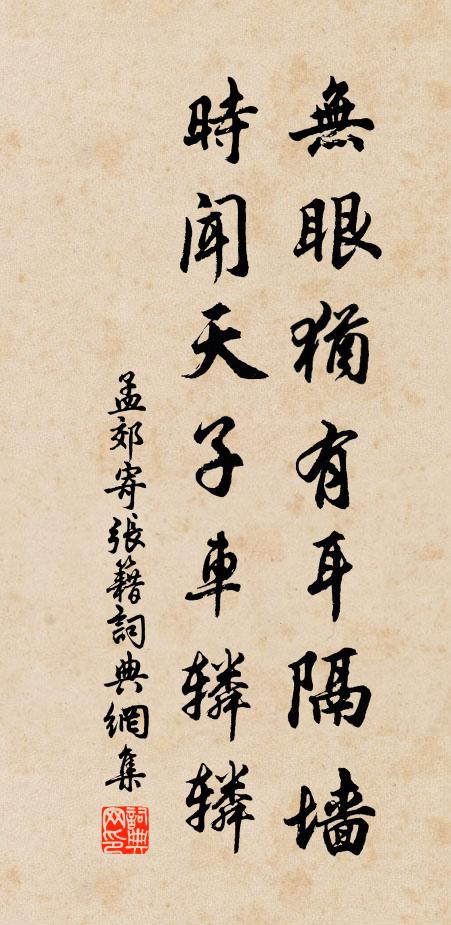 無眼猶有耳隔墻
時聞天子車轔轔
孟郊寄張籍詞典網集
詞典
网印